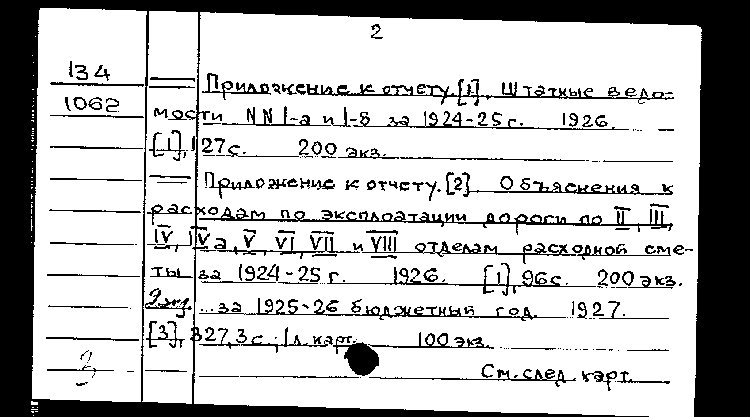 2
134
1062
— Приложение к отчету. [1]. Штатные ведо-
мости NN I-а и I-8 за 1924-25 г. 1926.
[1], 127 с. 200 экз.
— Приложение к отчету. [2]. Объяснения к
расходам по эксплоатации дороги по II, III,
IV, IVа, V, VI, VII и VIII отделам расходной сме-
ты за 1924-25 г. 1926. [1], 96 с. 200 экз.
2 экз. ... за 1925-26 бюджетный год. 1927.
[3], 327, 3 с.; 1 л. карт. 100 экз.
3
См. след. карт.